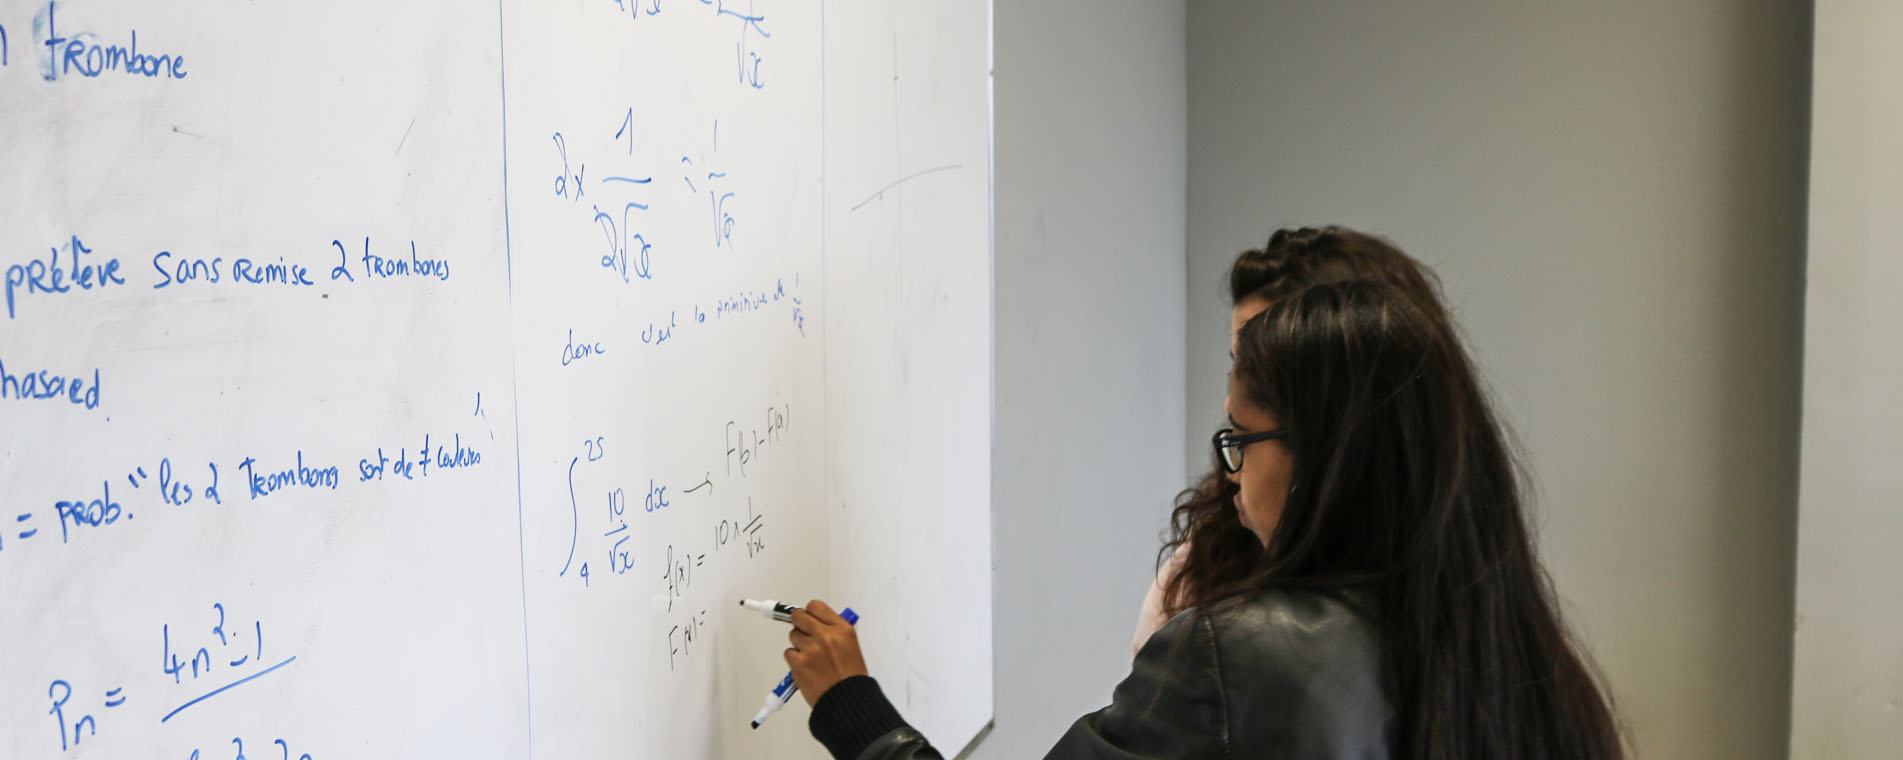 trombone
prélève sans remise 2 trombones
hasard.
= prob. "les 2 trombones sont de ≠ couleurs"
Pn = 4n² - 1
√x
2 × 1 / 2√x = 1 / √x
donc c'est la primitive de 1/√x
∫ 25 4 10/√x dx → F(b) - F(a)
f(x) = 10 × 1/√x
F(x) =